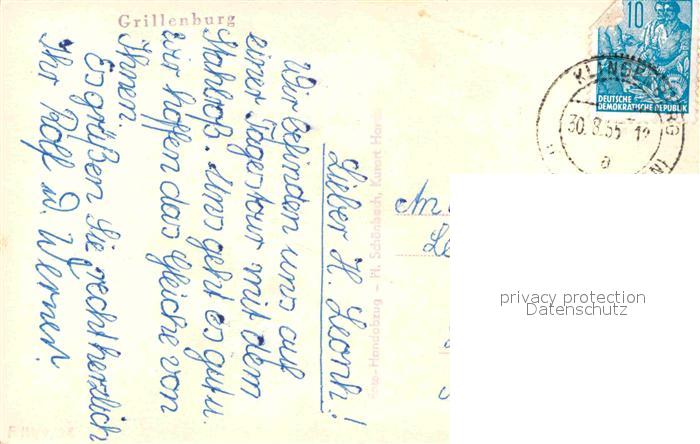 Grillenburg
Lieber H. Leonh.!
Wir befinden uns auf
einer Tagestour mit dem
Stahlroß. Uns geht es gut u.
wir hoffen das gleiche von
Ihnen.
Es grüßen Sie recht herzlich
Ihr Rolf u. Werner!
Foto-Handabzug - Pl. Schönbach, Kurort Har
An
10
DEUTSCHE
DEMOKRATISCHE REPUBLIK
30.8.55
privacy protection
Datenschutz